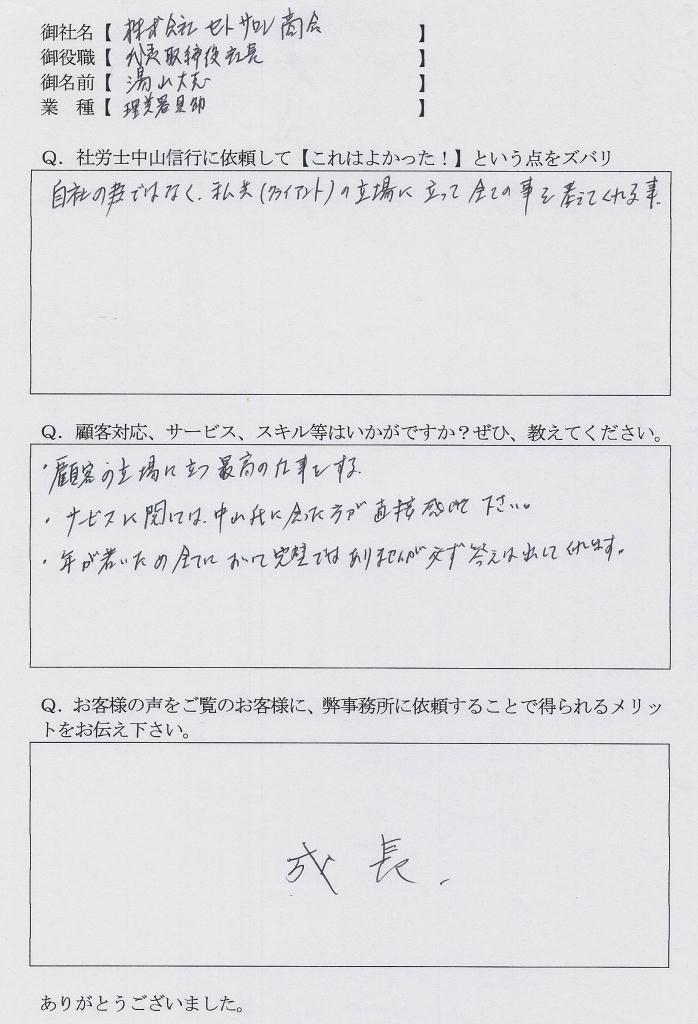 御社名【 株式会社 セトサロン商会 】
御役職【 代表取締役社長 】
御名前【 湯山大志 】
業　種【 理美容器具卸 】
Q．社労士中山信行に依頼して【これはよかった！】という点をズバリ
自社の声ではなく、私共(クライアント)の立場に立って全ての事を考えてくれる事。
Q．顧客対応、サービス、スキル等はいかがですか？ぜひ、教えてください。
・顧客の立場に立つ最高の仕事をする。
・サービスに関しては、中山氏に会った方が直接感じて下さい。
・年が若いため全てにおいて完璧ではありませんが必ず答えは出してくれます。
Q．お客様の声をご覧のお客様に、弊事務所に依頼することで得られるメリッ
トをお伝え下さい。
成長.
ありがとうございました。